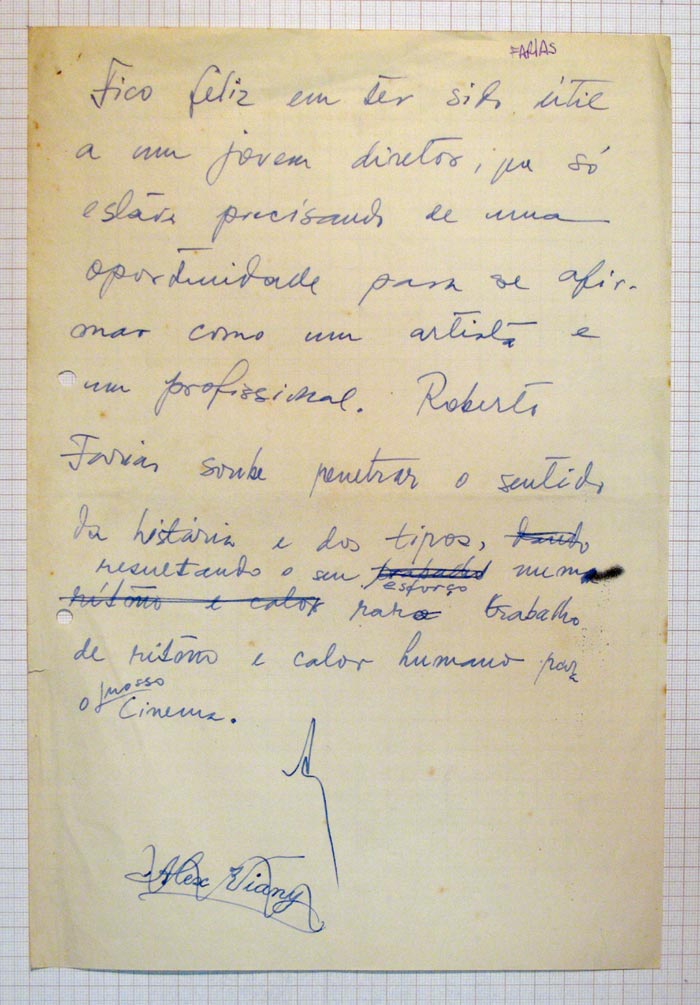 FARIAS
Fico feliz em ter sido útil
a um jovem diretor, que só
estava precisando de uma
oportunidade para se afir-
mar como um artista e
um profissional. Roberto
Farias soube penetrar o sentido
da história e dos tipos, dando
resultando o seu trabalho esforço num
ritmo e calor raro trabalho
de ritmo e calor humano para
o nosso Cinema.
Alex Viany